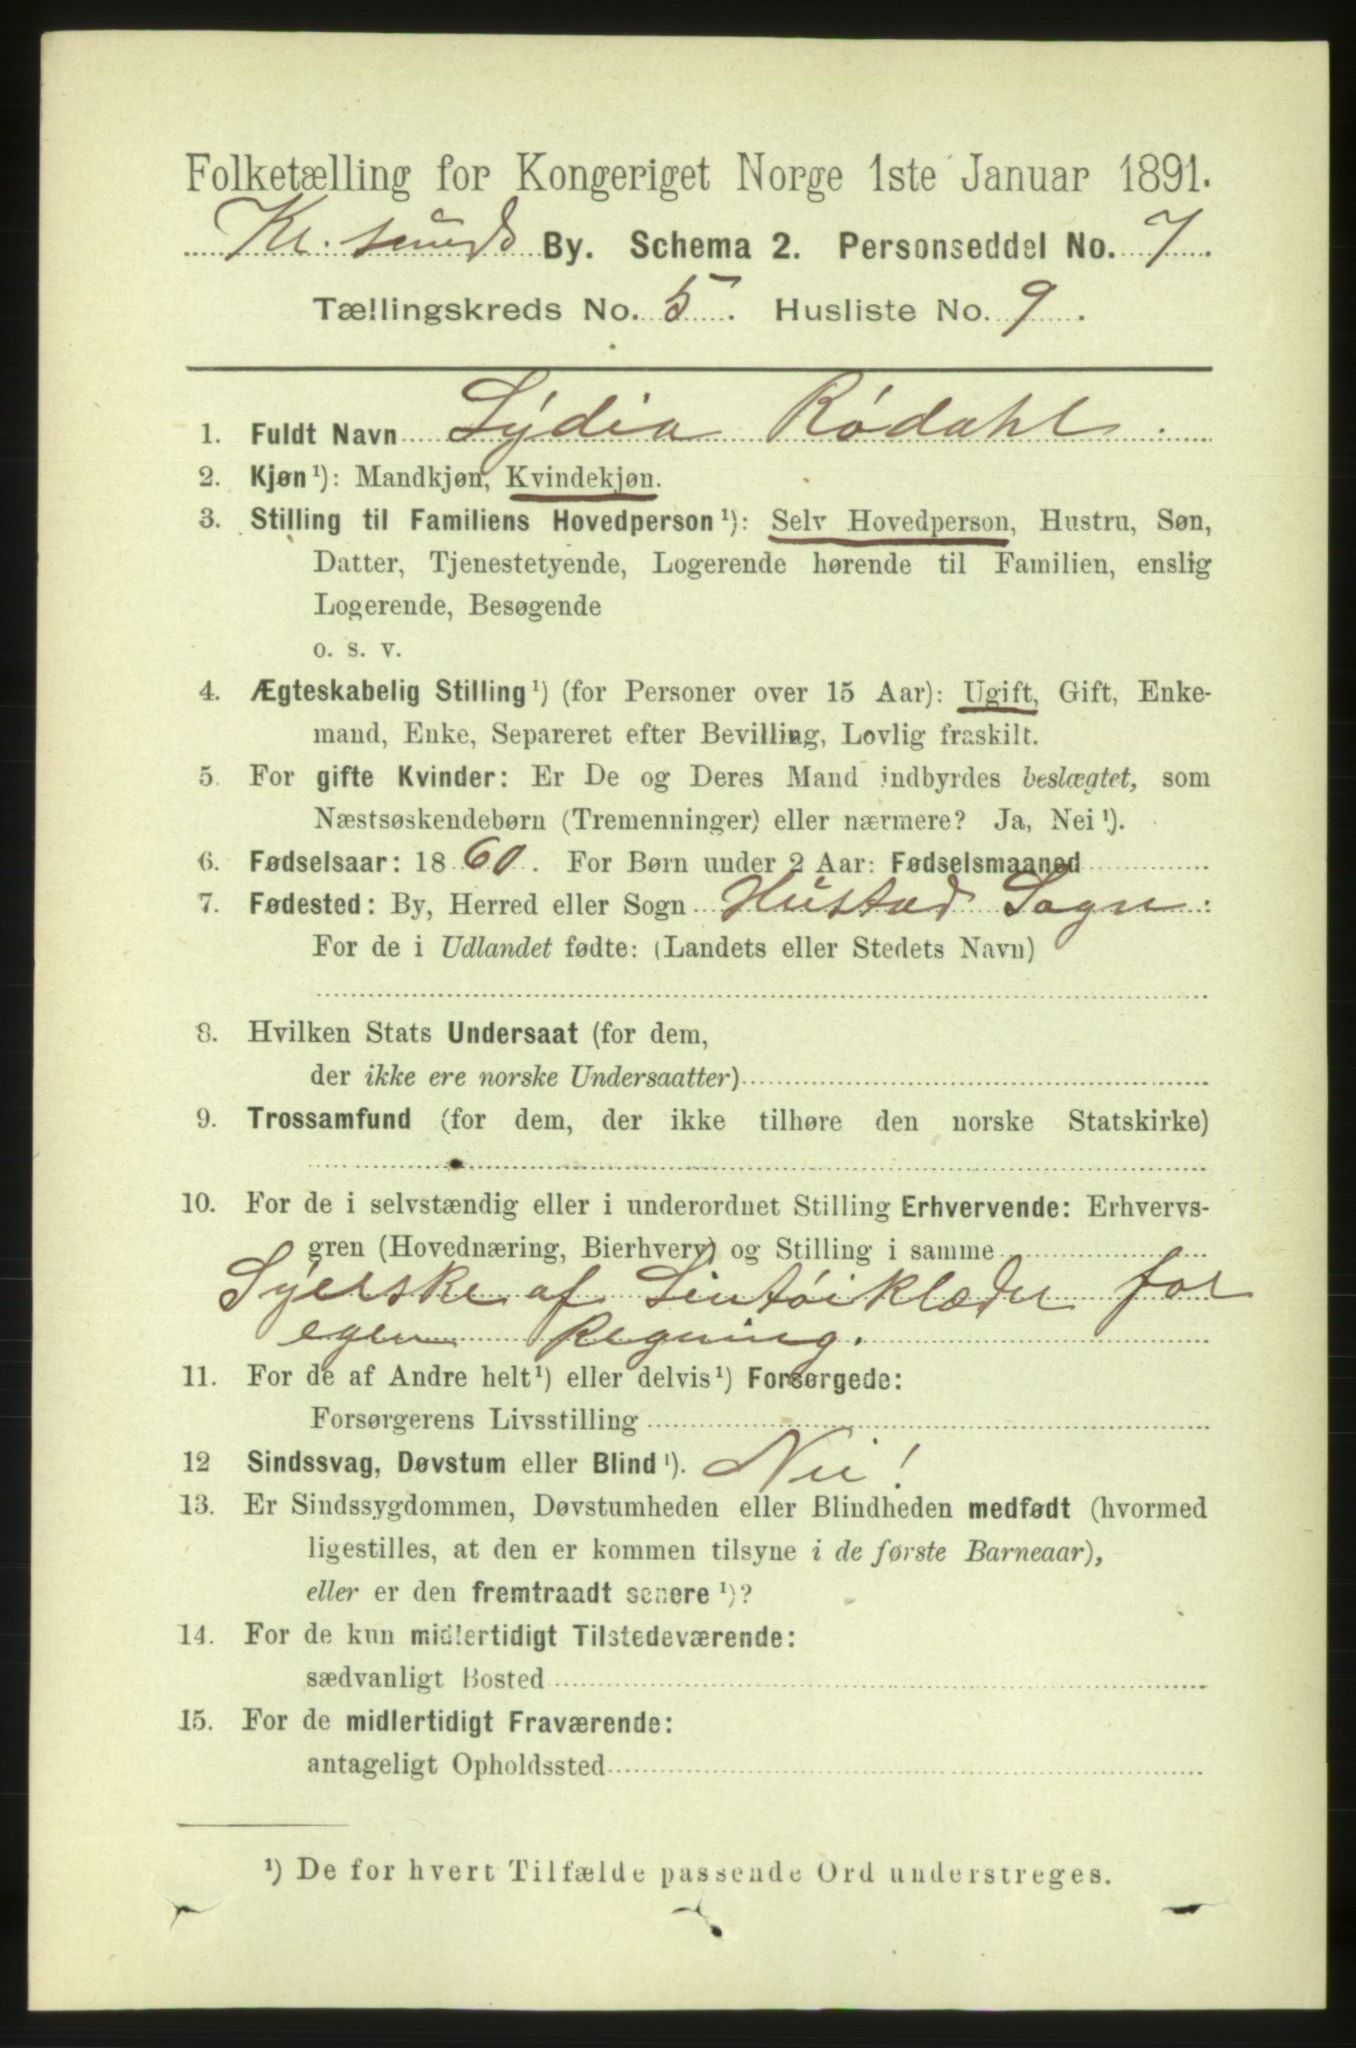 Folketælling for Kongeriget Norge 1ste Januar 1891.
Kr.sunds By. Schema 2. Personseddel No. 7.
Tællingskreds No. 5. Husliste No. 9.
1. Fuldt Navn Lydia Rødahl
2. Kjøn¹): Mandkjøn, Kvindekjøn.
3. Stilling til Familiens Hovedperson¹): Selv Hovedperson, Hustru, Søn,
Datter, Tjenestetyende, Logerende hørende til Familien, enslig
Logerende, Besøgende
o. s. v.
4. Ægteskabelig Stilling¹) (for Personer over 15 Aar): Ugift, Gift, Enke-
mand, Enke, Separeret efter Bevilling, Lovlig fraskilt.
5. For gifte Kvinder: Er De og Deres Mand indbyrdes beslægtet, som
Næstsøskendebørn (Tremenninger) eller nærmere? Ja, Nei¹).
6. Fødselsaar: 1860. For Børn under 2 Aar: Fødselsmaaned
7. Fødested: By, Herred eller Sogn Hustad Sogn:
For de i Udlandet fødte: (Landets eller Stedets Navn)
8. Hvilken Stats Undersaat (for dem,
der ikke ere norske Undersaatter)
9. Trossamfund (for dem, der ikke tilhøre den norske Statskirke)
10. For de i selvstændig eller i underordnet Stilling Erhvervende: Erhvervs-
gren (Hovednæring, Bierhverv) og Stilling i samme
Syerske af Lintøiklæder for
egen Regning.
11. For de af Andre helt¹) eller delvis¹) Forsørgede:
Forsørgerens Livsstilling
12 Sindssvag, Døvstum eller Blind¹). Nei!
13. Er Sindssygdommen, Døvstumheden eller Blindheden medfødt (hvormed
ligestilles, at den er kommen tilsyne i de første Barneaar),
eller er den fremtraadt senere¹)?
14. For de kun midlertidigt Tilstedeværende:
sædvanligt Bosted
15. For de midlertidigt Fraværende:
antageligt Opholdssted
¹) De for hvert Tilfælde passende Ord understreges.